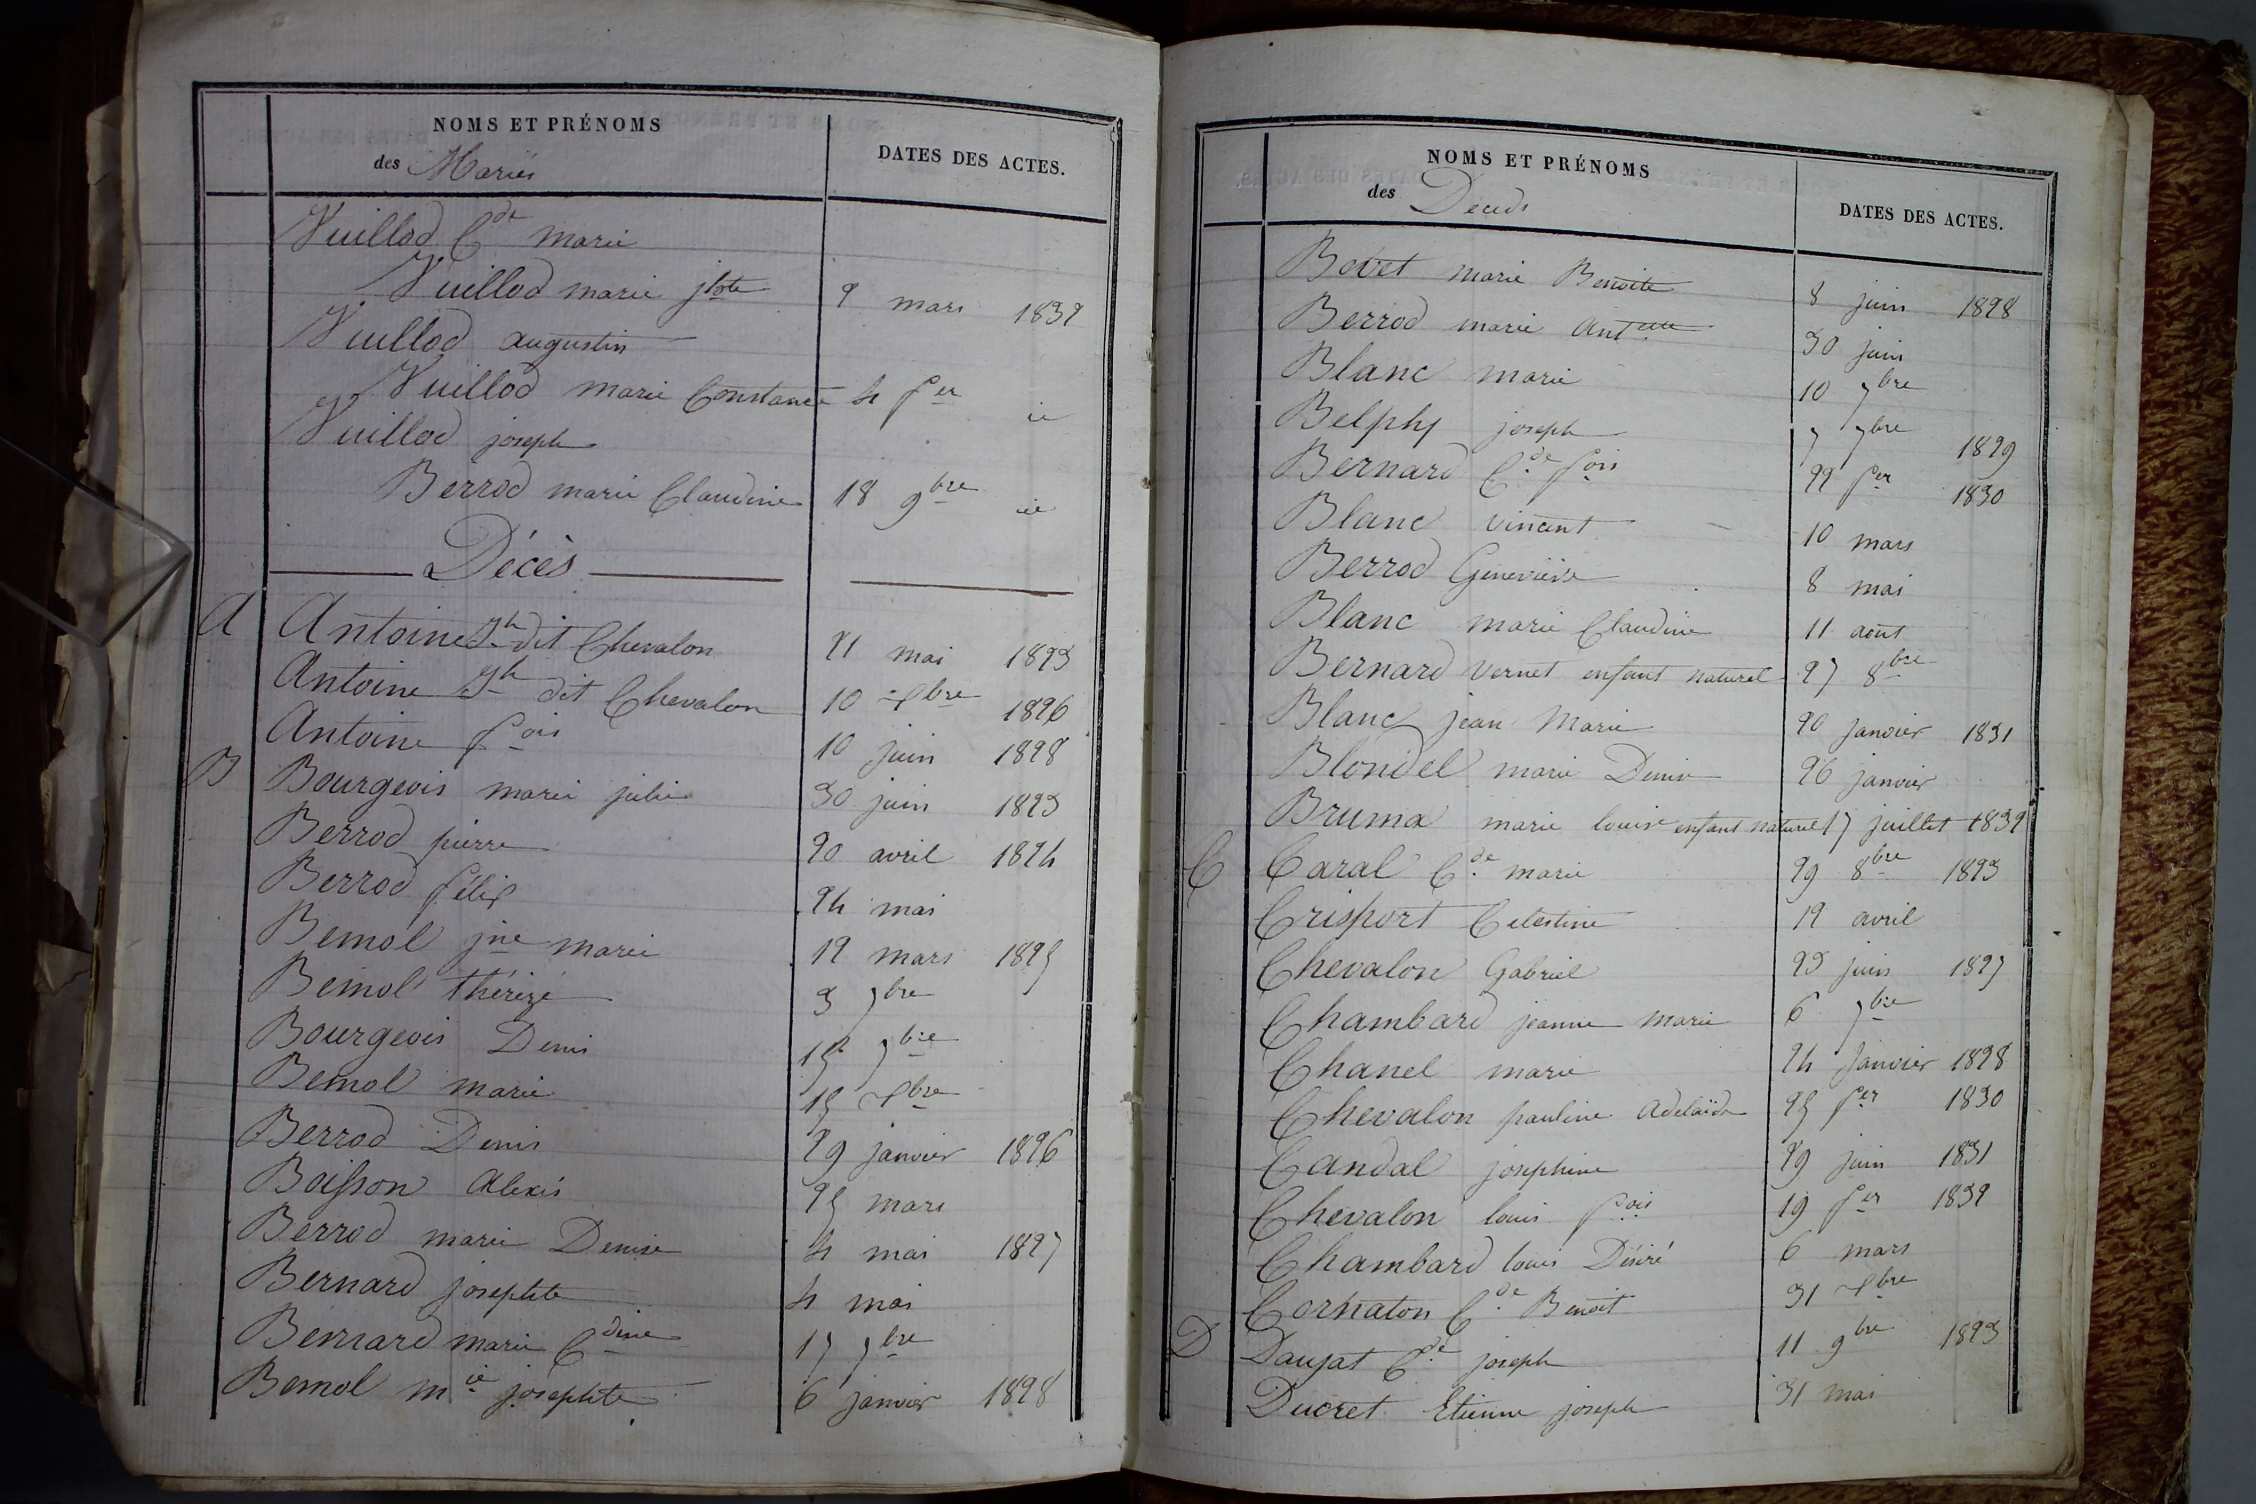 NOMS ET PRÉNOMS
des Mariés
DATES DES ACTES.
Vuillod Cde marie
Vuillod marie jbte 2 mars 1832
Vuillod augustin
Vuillod marie Constance 4 fer id
Vuillod joseph
Berrod marie Claudine 18 9bre id
Décès
A Antoine Jh dit Chevalon 21 mai 1823
Antoine Jh dit Chevalon 10 Xbre 1826
Antoine fois 10 juin 1828
B Bourgeois marie julie 30 juin 1823
Berrod pierre 20 avril 1824
Berrod félix 24 mai
Bemol jne marie 12 mars 1825
Bemol thérèze 3 7bre
Bourgeois Denis 15 7bre
Bemol marie 15 Xbre
Berrod Denis 29 janvier 1826
Boisson alexis 25 mars
Berrod marie Denise 4 mai 1827
Bernard josephte 4 mai
Bernard marie Cdine 17 7bre
Bemol mie josephte 6 janvier 1828
NOMS ET PRÉNOMS
des Décédés
DATES DES ACTES.
Bovet marie Benoite 8 juin 1828
Berrod marie antette 30 juin
Blanc marie 10 7bre
Belphy joseph 7 7bre 1829
Bernard Cde fois 22 fer 1830
Blanc vincent 10 mars
Berrod Geneviève 8 mai
Blanc marie Claudine 11 août
Bernard vernet enfant naturel 27 8bre
Blanc jean Marie 20 janvier 1831
Blondel marie Denise 26 janvier
Bruma marie louise enfant naturel 17 juillet 1832
C Caral Cde marie 29 8bre 1823
Crisport Celestine 12 avril
Chevalon Gabriel 23 juin 1827
Chambard jeanne marie 6 7bre
Chanel marie 24 janvier 1828
Chevalon pauline adelaïde 25 fer 1830
Candal josephine 29 juin 1831
Chevalon louis fois 19 fer 1832
Chambard louis Désiré 6 mars
Cornaton Cde Benoit 31 Xbre
D Daujat Cde joseph 11 9bre 1823
Ducret Etienne joseph 31 mai